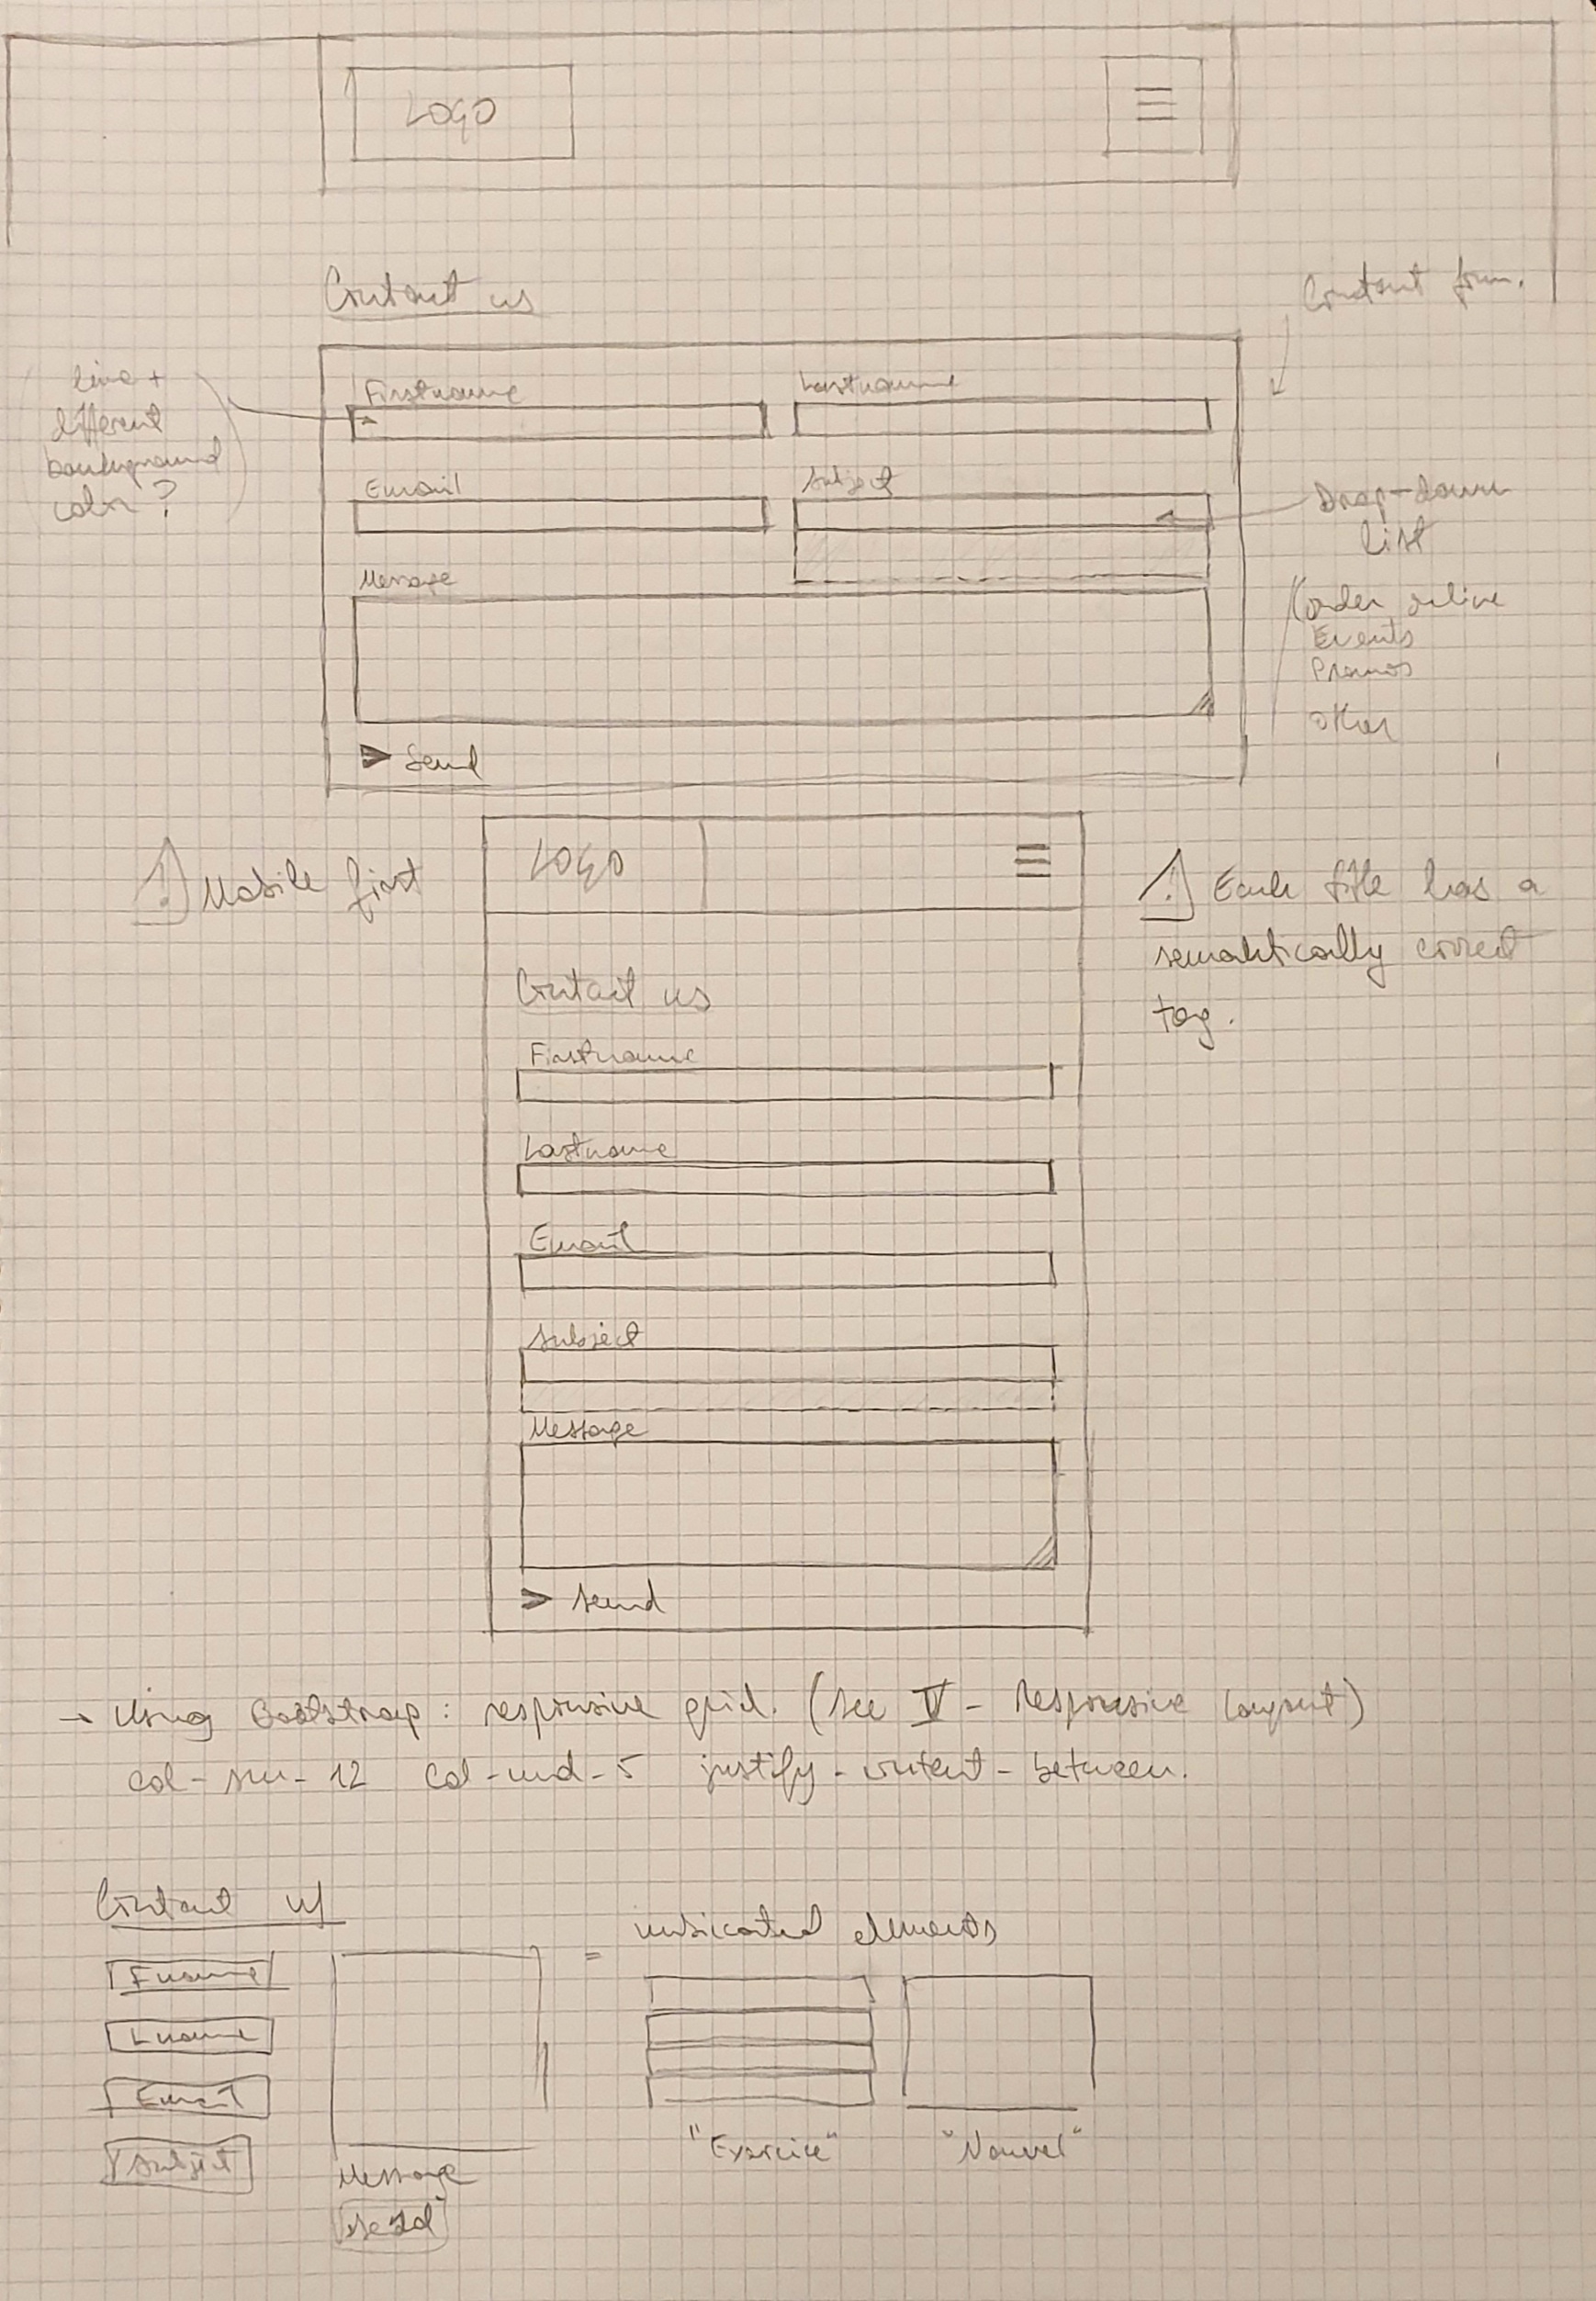 LOGO
Contact us
Contact form.
line +
different
background
color ?
Firstname
Lastname
Email
Subject
Drop-down
list
(order online
Events
Promos
other
Message
> Send
! Mobile first
LOGO
! Each title has a
semantically correct
tag.
Contact us
Firstname
Lastname
Email
Subject
Message
> Send
→ Using Bootstrap : responsive grid. (see IV - Responsive Layout)
col-sm-12 col-md-5 justify-content-between.
Contact us
Fname
Lname
Email
Subject
Message
Send
= elements
"Exercice"
"Nouvel"